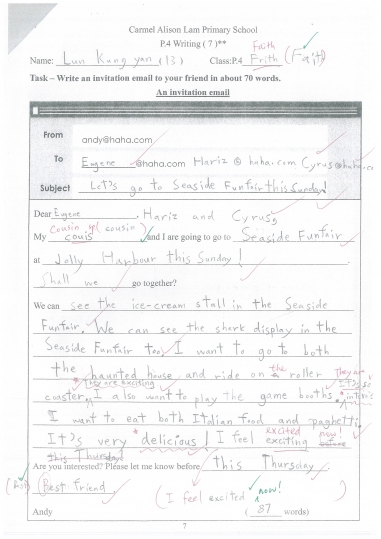 Carmel Alison Lam Primary School
P.4 Writing ( 7 )**
Faith
Name: Lun Kung yan ( 13 ) Class:P.4 Frith (Fait)
Task – Write an invitation email to your friend in about 70 words.
An invitation email
From andy@haha.com
To Eugene @haha.com Hariz @ haha.com Cyrus@haha.co
Subject Let's go to Seaside Funfair this Sunday!
Dear Eugene, Hariz and Cyrus,
cousin (cousin)
My couis and I are going to go to Seaside Funfair
at Jolly Harbour this Sunday!
Shall we go together?
We can see the ice-cream stall in the Seaside
Funfair. We can see the shark display in the
Seaside Funfair too. I want to go to both
the haunted house and ride on a roller
the They are
They are exciting
coaster. I also want to play the game booths. It's so
I want to eat both Italian food and spaghetti.
excited now!
It's very delicious! I feel exciting before
this Thursday
Are you interested? Please let me know before this Thursday.
(Best) Best friend,
(I feel excited now!)
Andy ( 87 words)
7